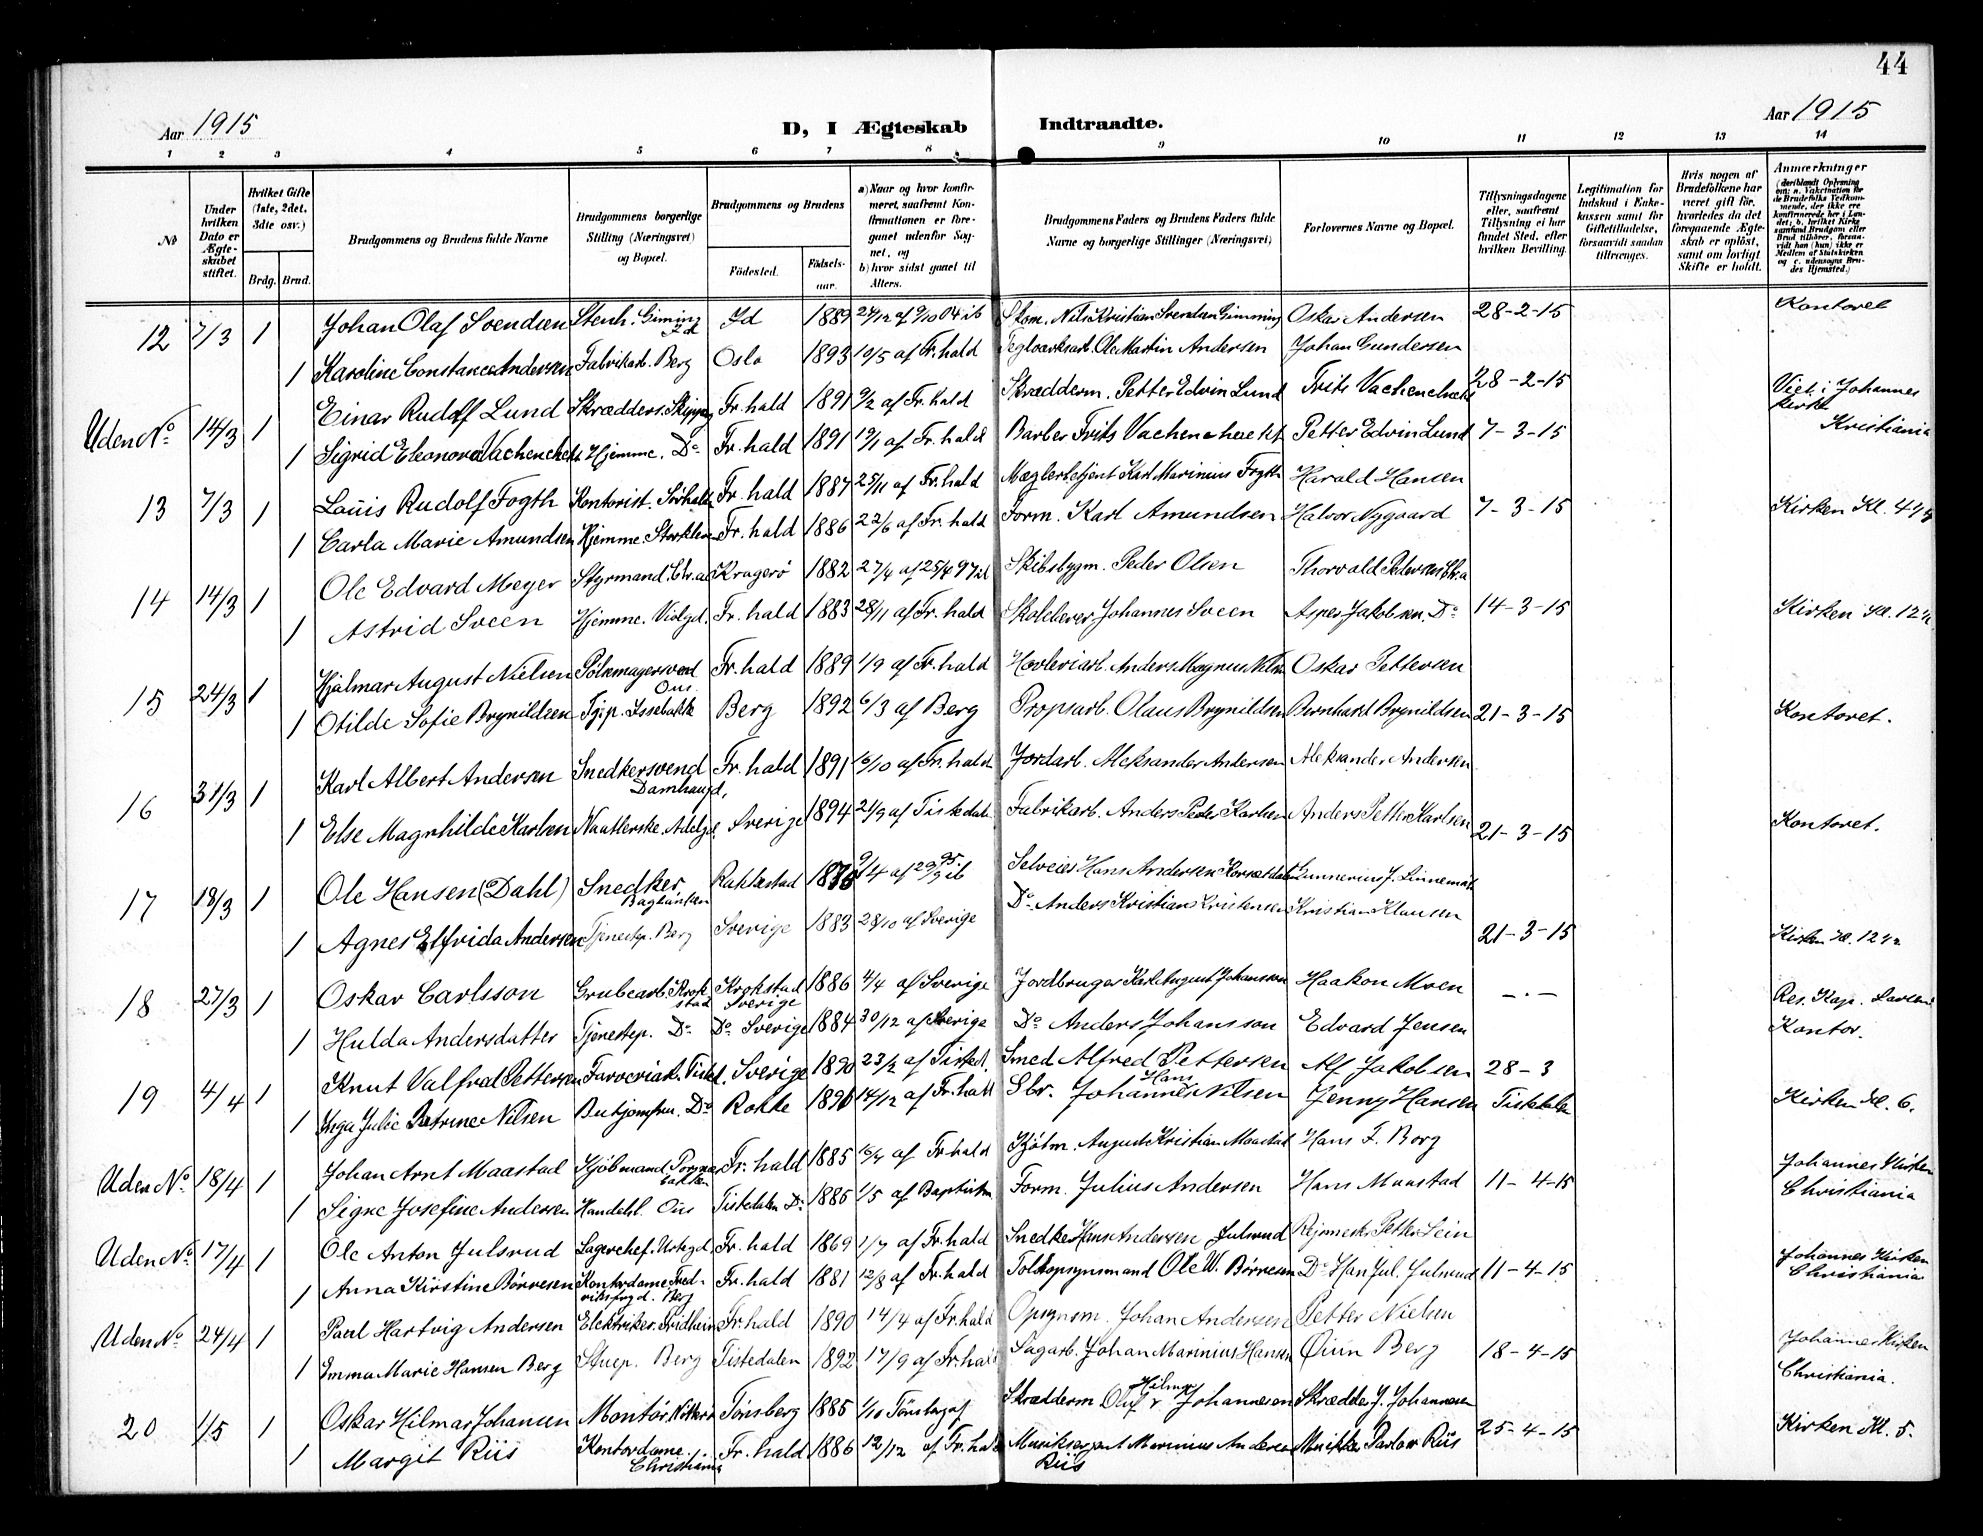 44
Aar 1915
D, I Ægteskab Indtraadte.
Aar 1915
1 2 3 4 5 6 7 8 9 10 11 12 13 14
No
Under hvilken Dato er Ægteskabet stiftet.
Hvilket Gifte (1ste, 2det, 3die osv.)
Brdg. Brud.
Brudgommens og Brudens fulde Navne
Brudgommens borgerlige Stilling (Næringsvei) og Bopæl.
Brudgommens og Brudens
Födested.
Födsels-aar.
a) Naar og hvor konfirmeret, saafremt Konfirmationen er foregaaet udenfor Sognet, og
b) hvor sidst gaaet til Alters.
Brudgommens Faders og Brudens Faders fulde Navne og borgerlige Stillinger (Næringsvei)
Forlovernes Navne og Bopæl.
Tillysningsdagene eller, saafremt Tillysning ei har fundet Sted, efter hvilken Bevilling.
Legitimation for Indskud i Enkekassen samt for Giftetilladelse, forsaavidt saadan tiltrænges.
Hvis nogen af Brudefolkene har været gift för, hvorledes da det foregaaende Ægteskab er oplöst, samt om lovligt Skifte er holdt.
Anmærkninger
(deriblandt Oplysning om: a. Vakcination for de Brudefolks Vedkommende, der ikke ere konfirmerede her i Landet; b. hvilket Kirkesamfund Brudgom eller Brud tilhörer, forsaavidt han (hun) ikke er Medlem af Statskirken og c. udensogns Brudes Hjemsted.)
12 7/3 1 Johan Olaf Svendsen Stenh. Gimming Id Id 1889 27/12 af 9/10 04 ib Skom. Nils Kristian Svendsen Gimming Oskar Andersen 28-2-15 Kontoret
1 Karoline Constance Andersen Fabrikarb. Berg Oslo 1893 10/5 af Fr.hald Teglværksarb. Ole Martin Andersen Johan Gundersen
Uden No 14/3 1 Einar Rudolf Lund Skrædders. 1891 9/2 af Fr.hald Skrædderm. Petter Edvin Lund Frits 28-2-15 Viet i Johannes kirke
1 Sigrid Eleonora Hjemme. Do Fr.hald 1891 19/1 af Fr.hald Barber Frits Petter Edvin Lund 7-3-15 Kristiania
13 7/3 1 Louis Rudolf Fogth Kontorist. Fr.hald 1887 25/11 af Fr.hald Mæglerbetjent Karl Marinius Fogth Harald Hansen
1 Carla Marie Amundsen Hjemme. Fr.hald 1886 22/6 af Fr.hald Form. Karl Amundsen Halvor Nygaard 7-3-15 Kirken Kl.
14 14/3 1 Ole Edvard Meyer Styrmand. Kragerø 1882 27/4 af 25/4 97 ib Skibsbygm. Peder Olsen Thorvald Pedersen
1 Astrid Sveen Hjemme. Fr.hald 1883 28/11 af Fr.hald Johannes Sveen Asper Jakobsen. Do 14-3-15 Kirken Kl.
15 24/3 1 Hjalmar August Nielsen Pölsemagersvend Ous. Fr.hald 1889 1/9 af Fr.hald Høvleriarb. Anders Magnus Nilsen Oskar Pettersen
1 Otilde Sofie Brynildsen Tjp. Berg 1892 6/3 af Berg Propsarb. Olaus Brynildsen Bernhard Brynildsen 21-3-15 Kontoret.
16 31/3 1 Karl Albert Andersen Snedkersvend Damhaugd. Fr.hald 1891 6/10 af Fr.hald Jordarb. Aleksander Andersen Aleksander Andersen
1 Else Magnhilde Karlsen Naatlerske. Sverige 1894 21/9 af Tistedalen Fabrikarb. Anders Peder Karlsen Anders Petter Karlsen 21-3-15 Kontoret.
17 18/3 1 Ole Hansen (Dahl) Snedker. Rakkestad 9/4 af 29/9 95 ib Selveier Hans Andersen
1 Agnes Elfrida Andersen Tjenestep. Berg Sverige 1883 28/10 af Sverige Do Anders Kristian Kristensen Kristian Klausen 21-3-15 Kirken Kl.
18 27/3 1 Oskar Carlsson Grubearb. Krokstad Krokstad Sverige 1886 4/4 af Sverige Jordbruger Karl August Johansson Haakon Moen -.- Res. Kap.
1 Hulda Andersdatter Tjenestep. Do Do Sverige 1884 30/12 af Sverige Do Anders Johansson Edvard Jensen Kontor.
19 4/4 1 Knut Valfred Pettersen Farveriarb. Tisted. Sverige 1890 23/2 af Tisted. Smed Alfred Pettersen Alf Jakobsen 28-3
1 Inga Julie Petrine Nilsen Butjomfru. Do Rokke 14/12 af Fr.hald Sbr. Johannes Hans Nilsen Jenny Hansen Tistedalen Kirken Kl. 6.
Uden No 18/4 1 Johan Arnt Maastad Kjøbmand Fr.hald 1885 af Fr.hald Kjøbm. August Kristian Maastad Hans F. Borg Johannes Kirken
1 Signe Josefine Andersen Handels. Ous Tistedalen Do 1885 1/5 af Baptister Form. Julius Andersen Hans Maastad 11-4-15 Christiania
Uden No 17/4 1 Ole Anton Julsrud Lagerchef. Fr.hald 1869 1/7 af Fr.hald Snedker Hans Andersen Julsrud Petter
1 Anna Kirstine Børresen Kontordame Fredriksfryd. Berg Fr.hald 1881 12/8 af Fr.hald Toldopsynsmand Ole W. Børresen Do Hans Jul. Julsrud 11-4-15 Johannes Kirken Christiania
Uden No 24/4 1 Paul Hartvig Andersen Elektriker. Fr.hald 1890 14/4 af Fr.hald Opsynsm. Johan Andersen Petter Nielsen
1 Emma Marie Hansen Berg Stuep. Berg Tistedalen 1892 17/9 af Fr.hald Sagarb. Johan Marinius Hansen Berg 18-4-15 Johannes Kirken Christiania.
20 1/5 1 Oskar Hilmar Johansen Montör. Nötterö Tönsberg 1885 1/10 Tönsberg af Skrædderm Oluf Hilmar Johannesen Skrædder J. Johannesen
1 Margit Riis Kontordame. Christiania Fr.hald 1886 12/12 af Fr.hald Musiksergent Marinius Andersen Riis Riis 25-4-15 Kirken Kl. 5.